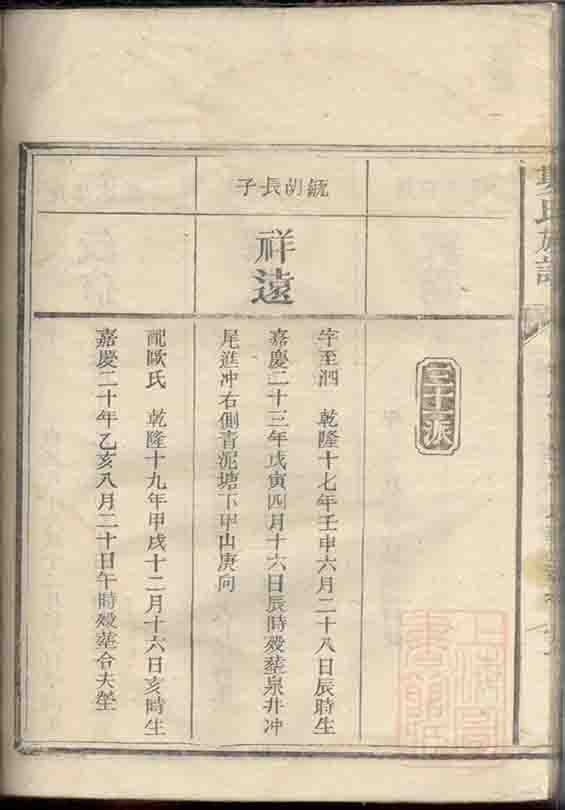 氏族譜
三十派
毓胡長子
祥遠
字至泗 乾隆十七年壬申六月二十八日辰時生
嘉慶二十三年戊寅四月十六日辰時殁塟泉井冲
尾進冲右側青泥塘下甲山庚向
配歐氏 乾隆十九年甲戌十二月十六日亥時生
嘉慶二十年乙亥八月二十日午時殁塟合夫塋